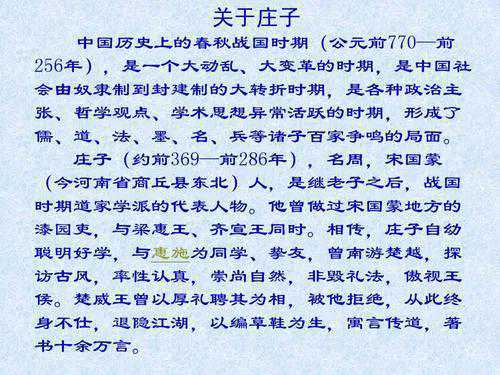 关于庄子
中国历史上的春秋战国时期（公元前770—前
256年），是一个大动乱、大变革的时期，是中国社
会由奴隶制到封建制的大转折时期，是各种政治主
张、哲学观点、学术思想异常活跃的时期，形成了
儒、道、法、墨、名、兵等诸子百家争鸣的局面。
庄子（约前369—前286年），名周，宋国蒙
（今河南省商丘县东北）人，是继老子之后，战国
时期道家学派的代表人物。他曾做过宋国蒙地方的
漆园吏，与梁惠王、齐宣王同时。相传，庄子自幼
聪明好学，与惠施为同学、挚友，曾南游楚越，探
访古风，率性认真，崇尚自然，非毁礼法，傲视王
侯。楚威王曾以厚礼聘其为相，被他拒绝，从此终
身不仕，退隐江湖，以编草鞋为生，寓言传道，著
书十余万言。